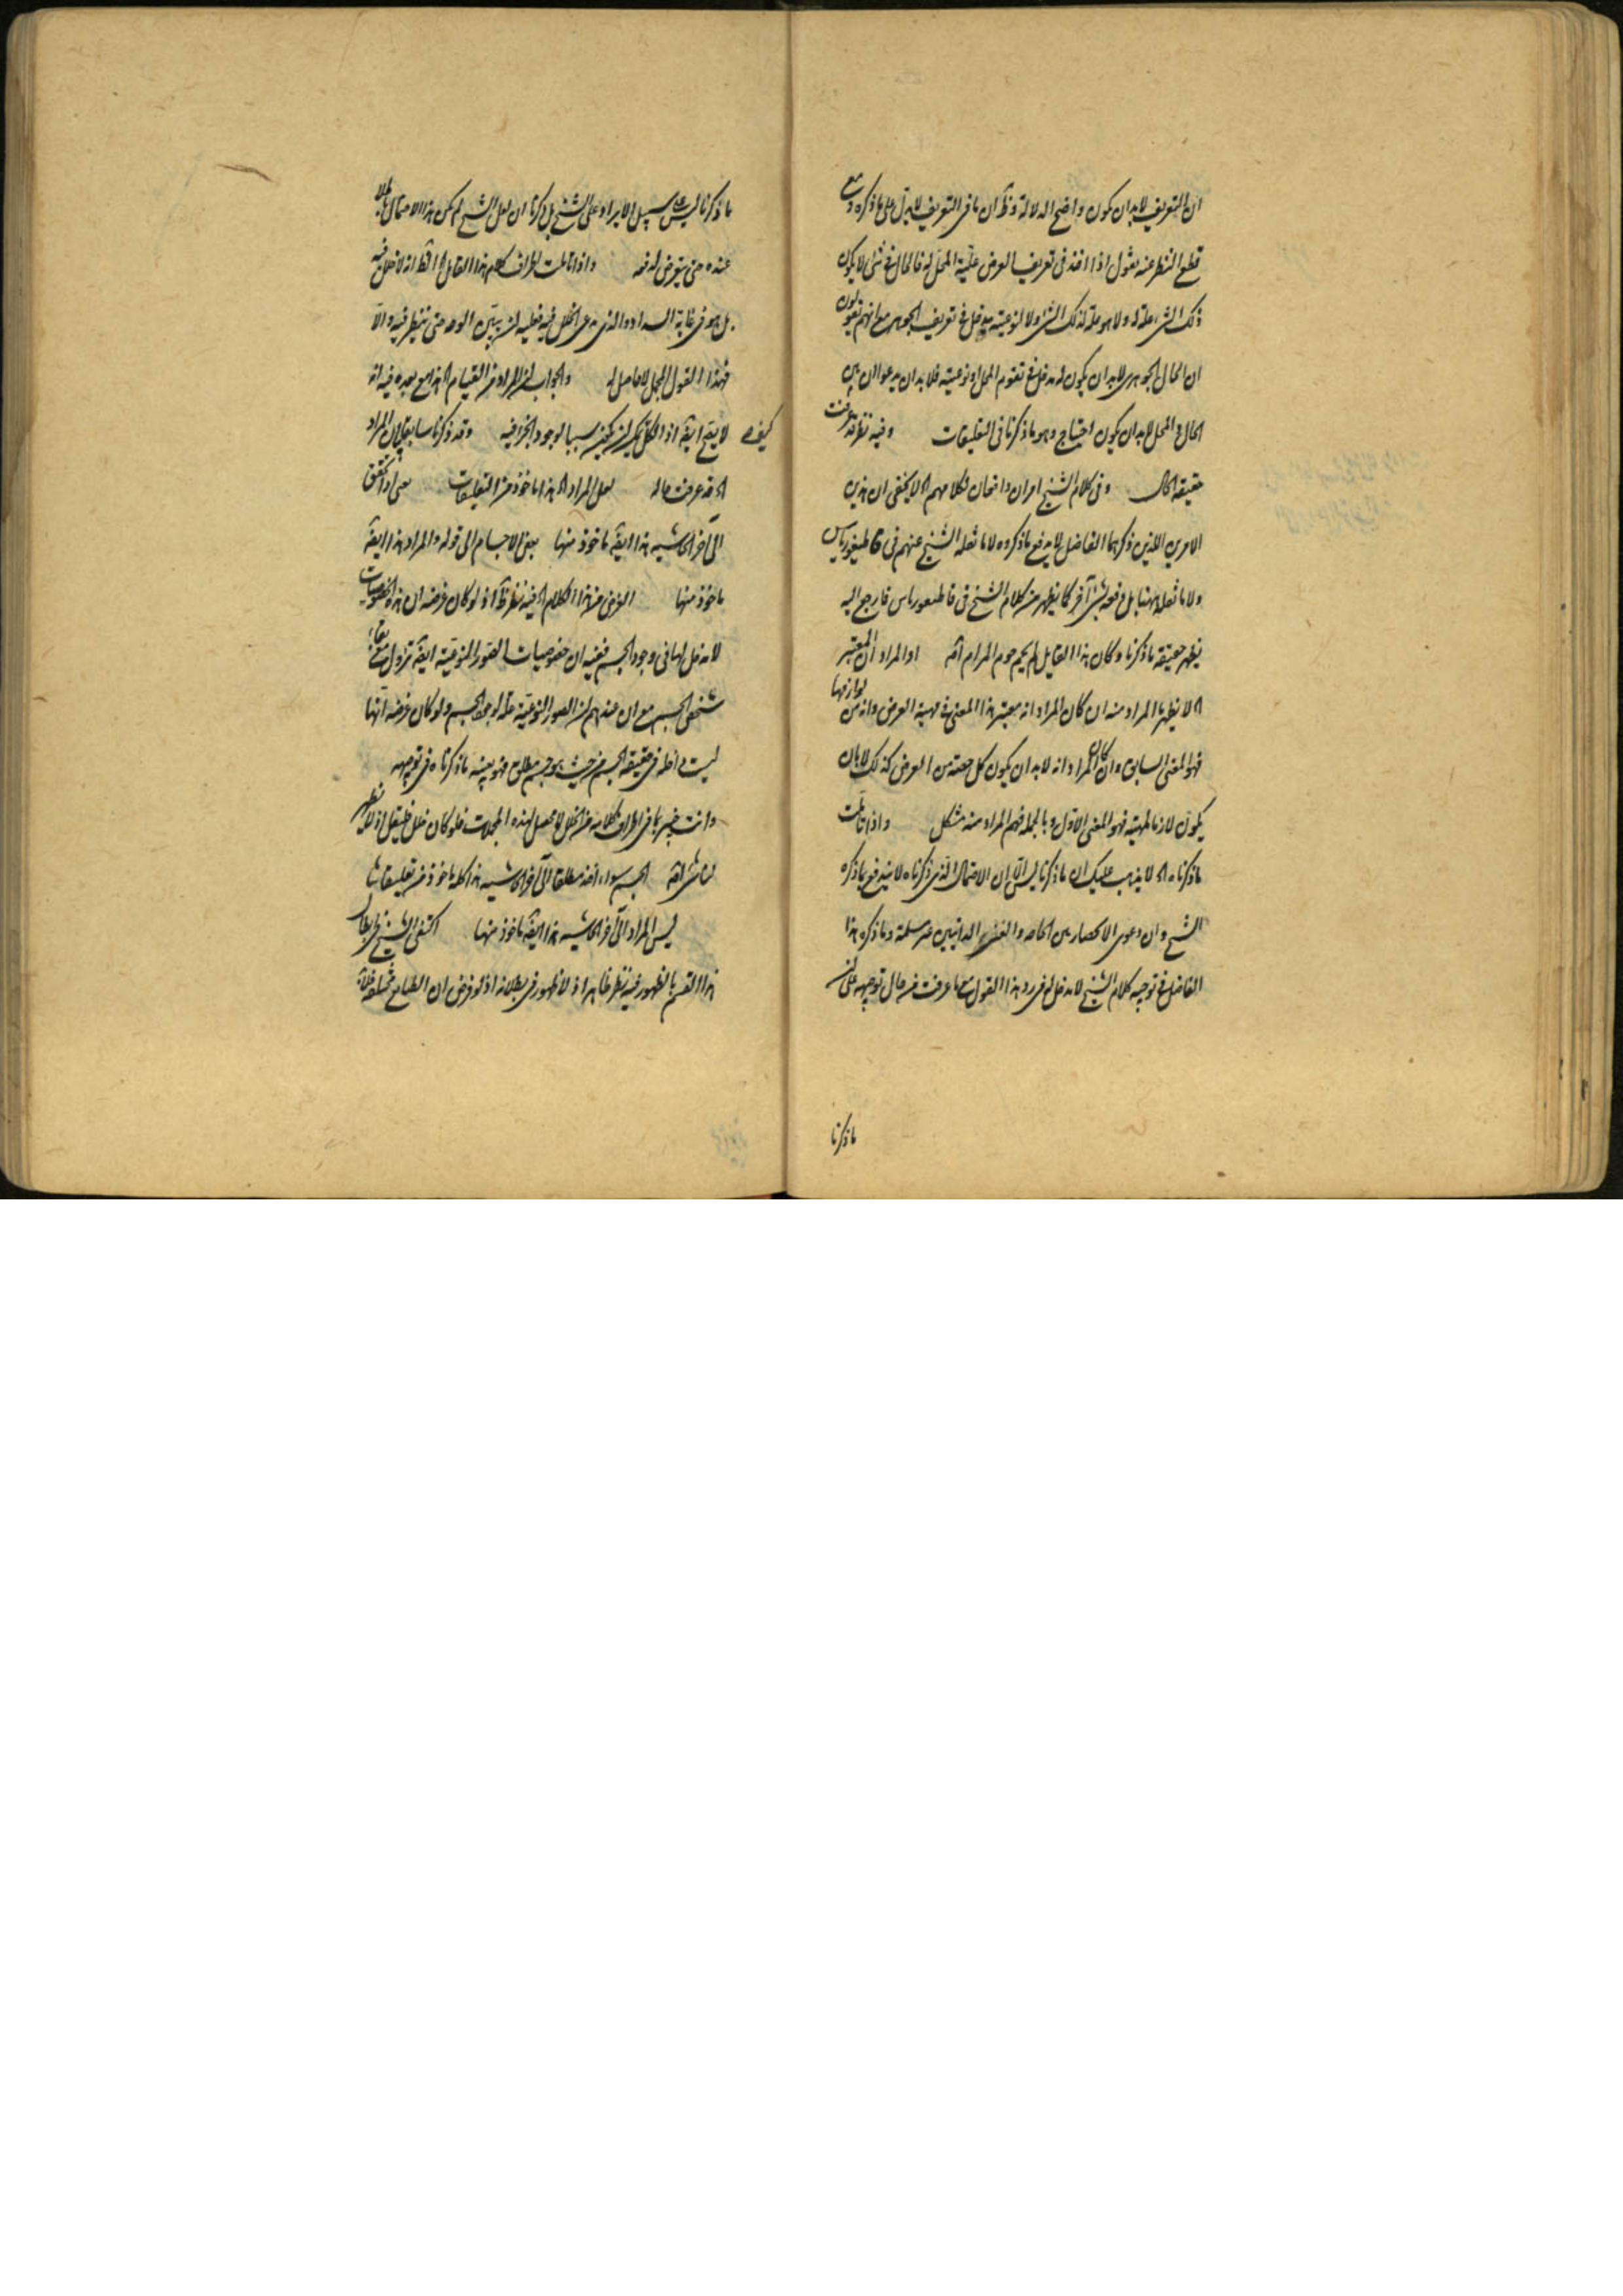 ان التعريف لا بد ان يكون واضح الدلالة وظ ان ما فى التعريف لا يدل على ما ذكره ومع
قطع النظر عنه نقول اذا اخذ فى تعريف العرض علية المحل له فالحال فى شئ لا يكون
ذلك الشئ علة له ولا هو علة لذلك الشئ ولا لنوعيته يدخل فى تعريف الجوهر مع انهم يقولون
ان الحال الجوهرى لا بد ان يكون له مدخل فى تقوم المحل او نوعيته فلا بد ان يدعوا ان بين
الحال و المحل لا بد ان يكون احتياج وهو ما ذكرنا فى التعليقات وفيه نظر قد عرفت
حقيقة الحال وفى كلام الشيخ امران واضحان فكلامهم اه لا يخفى ان هذين
الامرين اللذين ذكرهما الفاضل لا يدفع ما ذكروه لا ما نقله الشيخ عنهم فى قاطيغورياس
ولا ما نقله هنا بل دفعه بشئ آخر كما يظهر من كلام الشيخ فى قاطيغورياس فارجع اليه
يظهر حقيقة ما ذكرنا وكان هذا القايل لم يحم حوم المرام اثم او المراد ان المعتبر
اه لا يظهر المراد منه ان كان المراد انه معتبر هذا المعنى فى مهية العرض وانه من لوازمها
فهو المعنى السابق وان كان المراد انه لا بد ان يكون كل حصته من العرض كذلك لا بان
يكون لازما لمهيته فهو المعنى الاول و بالجملة فهم المراد منه مشكل واذا تاملت
ما ذكرناه اه لا يذهب عليك ان ما ذكرنا ليس الا ان الاحتمال الذى ذكرناه لا يندفع بما ذكره
الشيخ وان دعوى الانحصار بين الخاصه و الفصل الذاتيين غير مسلمة وما ذكره هذا
الفاضل فى توجيه كلام الشيخ لا مدخل له فى رد هذا القول مع ما عرفت من حال توجيهه على ان
ما ذكرنا
ما ذكرنا ليس على سبيل الايراد على الشيخ بل ذكرنا ان لعل الشيخ لم يكن هذا الاحتمال باطلا
عنده حتى يتعرض لدفعه واذا تاملت اطراف كلام هذا القايل اه اقط انه لا خلل فيه
بل هو فى غاية السداد والذى يدعى الخلل فيه فعليه ان يبين الوجه حتى ينظر فيه والا
فهذا القول المجمل لا حاصل له والجواب ان المراد من القيام اه هذا مع بعده فيه انه
لا يقع ايضا اذ الكل يمكن ان يكون سببا لوجود الجزء فيه وقد ذكرنا سابقا ان المراد
اه قد عرفت حاله لعل المراد اه هذا ماخوذ من التعليقات يعنى اذا تحقق
الى آخر الحاشيه هذا ايضا ماخوذ منها بعض الاجسام الى قوله والمراد هذا ايضا
ماخوذ منها الغرض من هذا الكلام اه فيه نظر ظ اذ لو كان غرضه ان هذه الخصوصيات
لا مدخل لها فى وجود الجسم ففيه ان خصوصيات الصور النوعية ايضا تزول مع بقاء
شخص الجسم مع ان عندهم ان الصور النوعية علة لوجود الجسم ولو كان غرضه انها
ليست داخلة فى حقيقة الجسم من حيث هو جسم مطلق فهو بعينه ما ذكرناه فى توجيهه
وانت خبير بما فى اطراف كلامه من الخلل لا محصل لهذه المجملات فلو كان خلل فلينقل اذ لا يظهر
لنا شئ اثم الجسم سواء اخذ مطلقا الى آخر الحاشيه هذا كله ماخوذ من تعليقاتنا
ليس المراد الى آخر الحاشيه هذا ايضا ماخوذ منها اكتفى الشيخ فى ابطال
هذا القسم بالظهور فيه نظر ظاهر اذ لا ظهور فى بطلانه اذ لو فرض ان الطبايع مختلفة